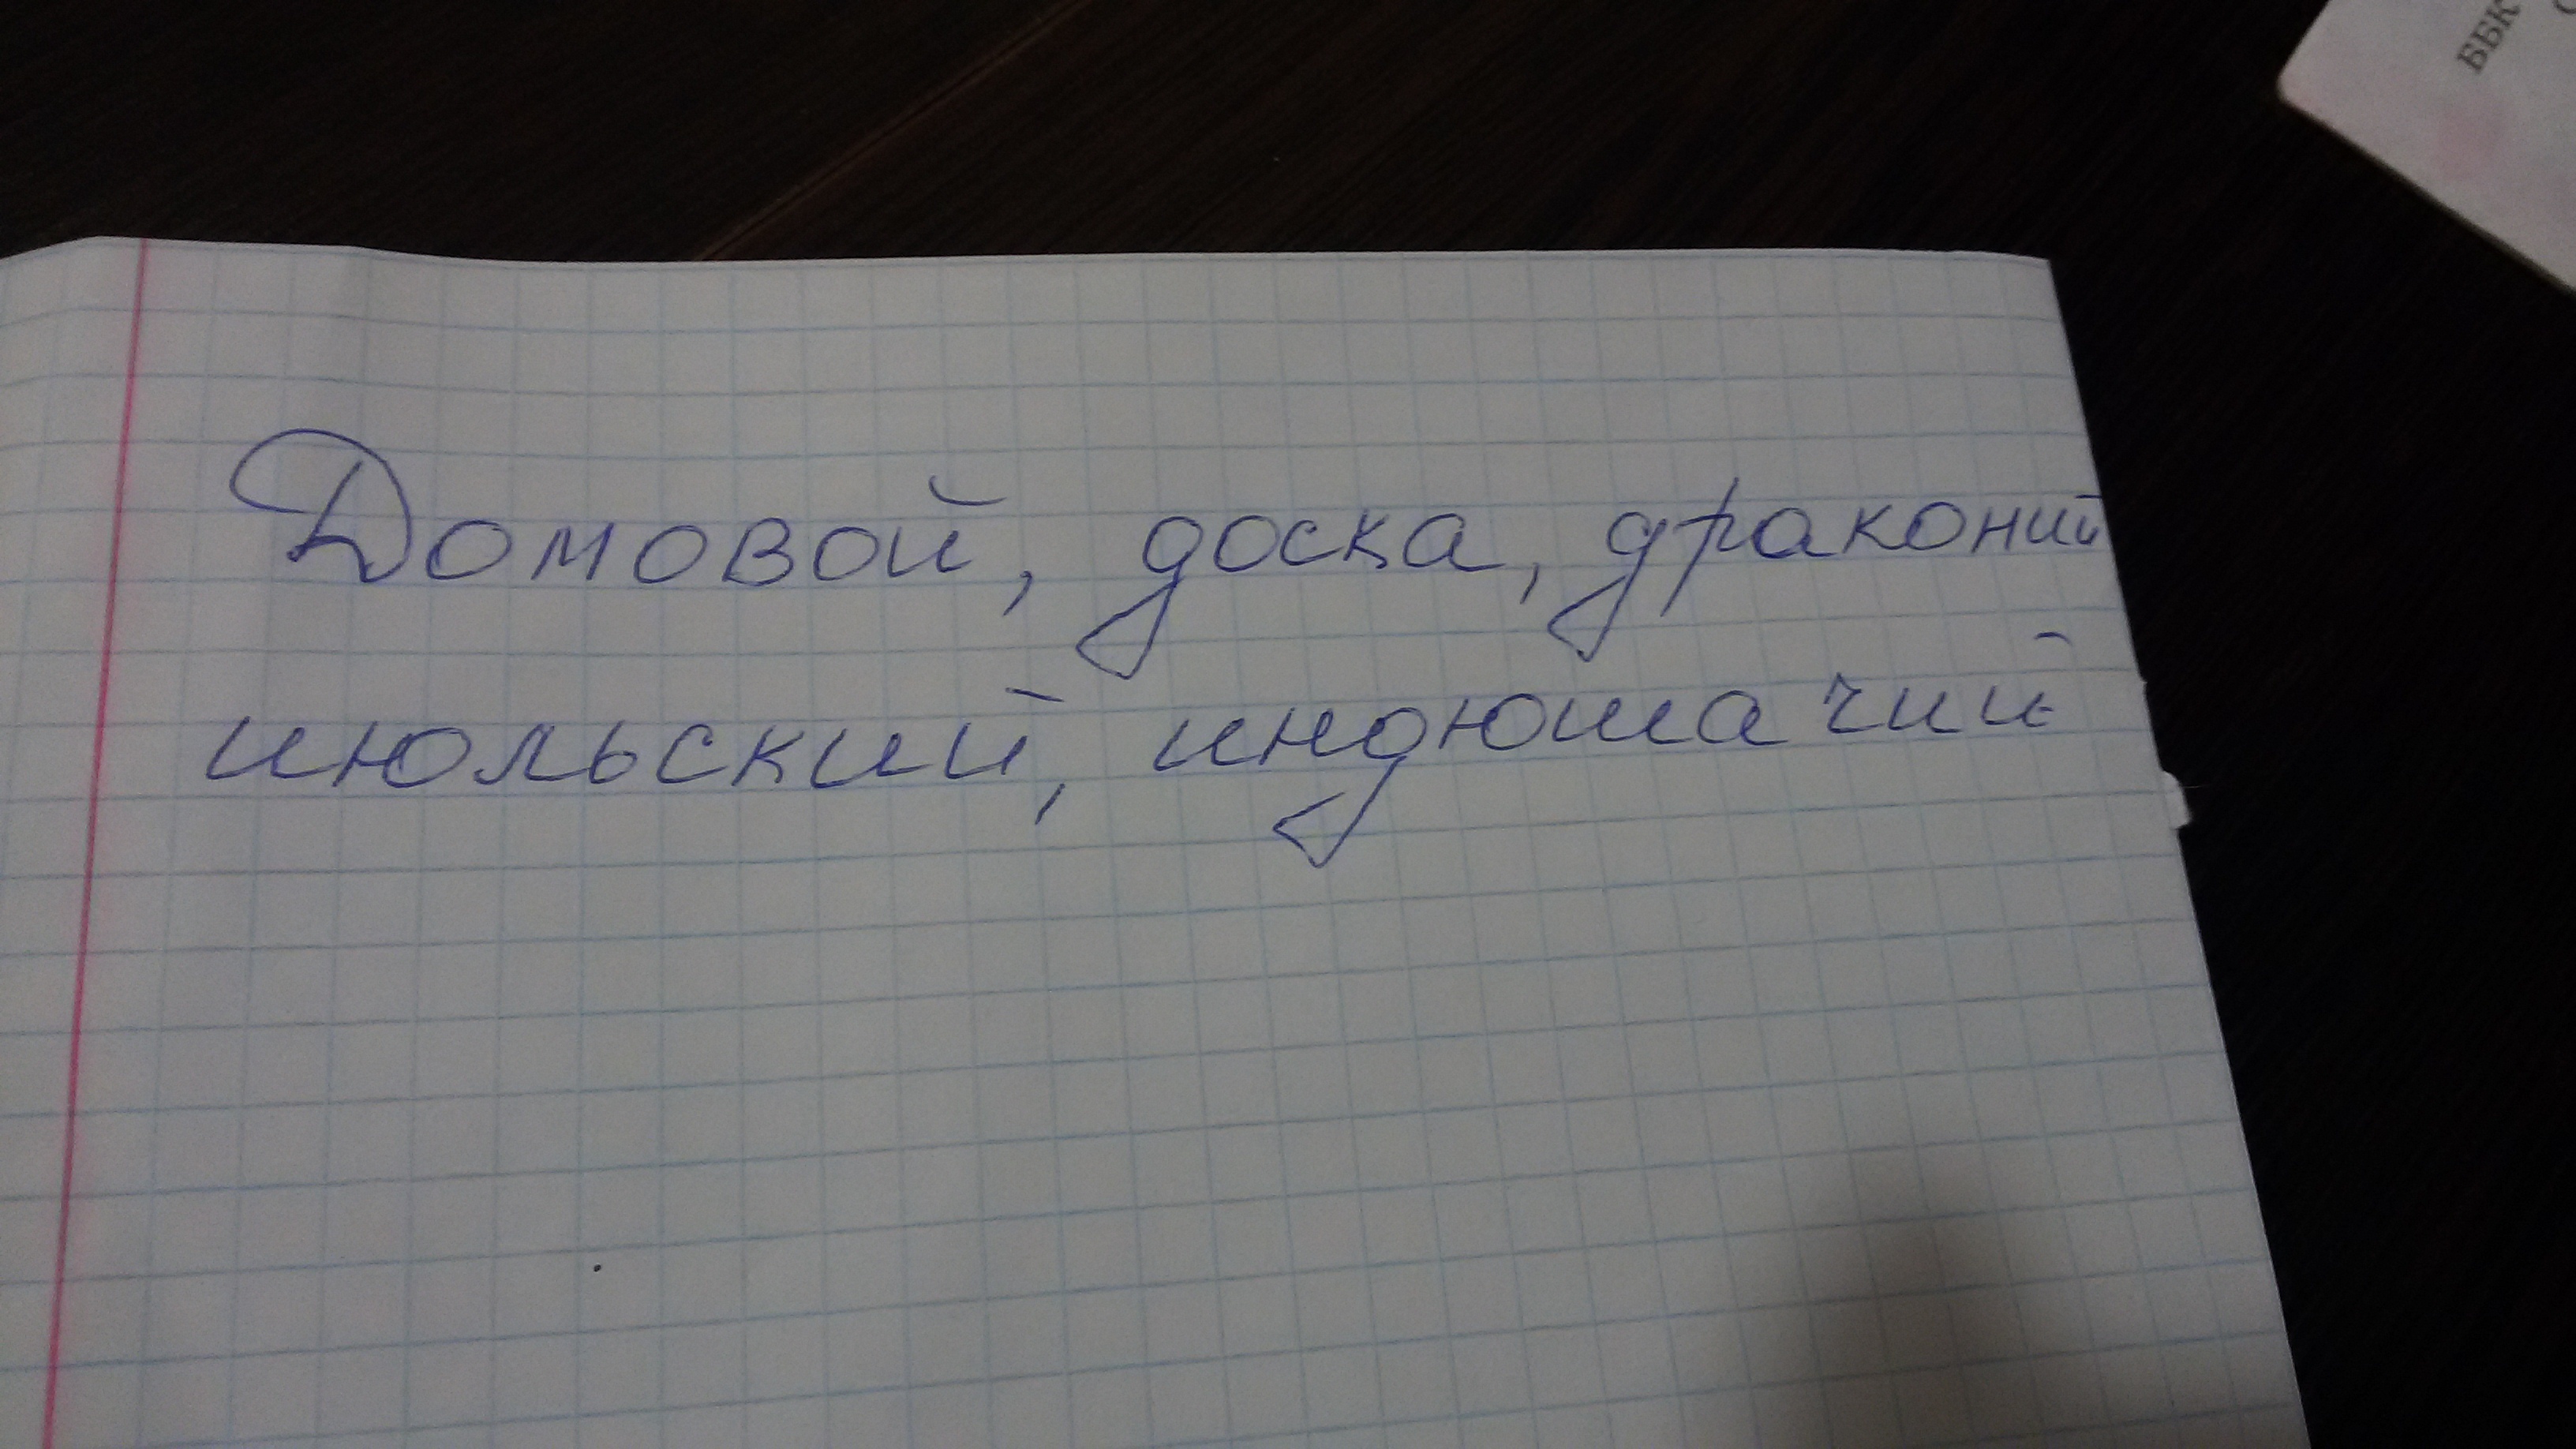 ББК
Домовой, доска, драконий
июльский, индюшачий